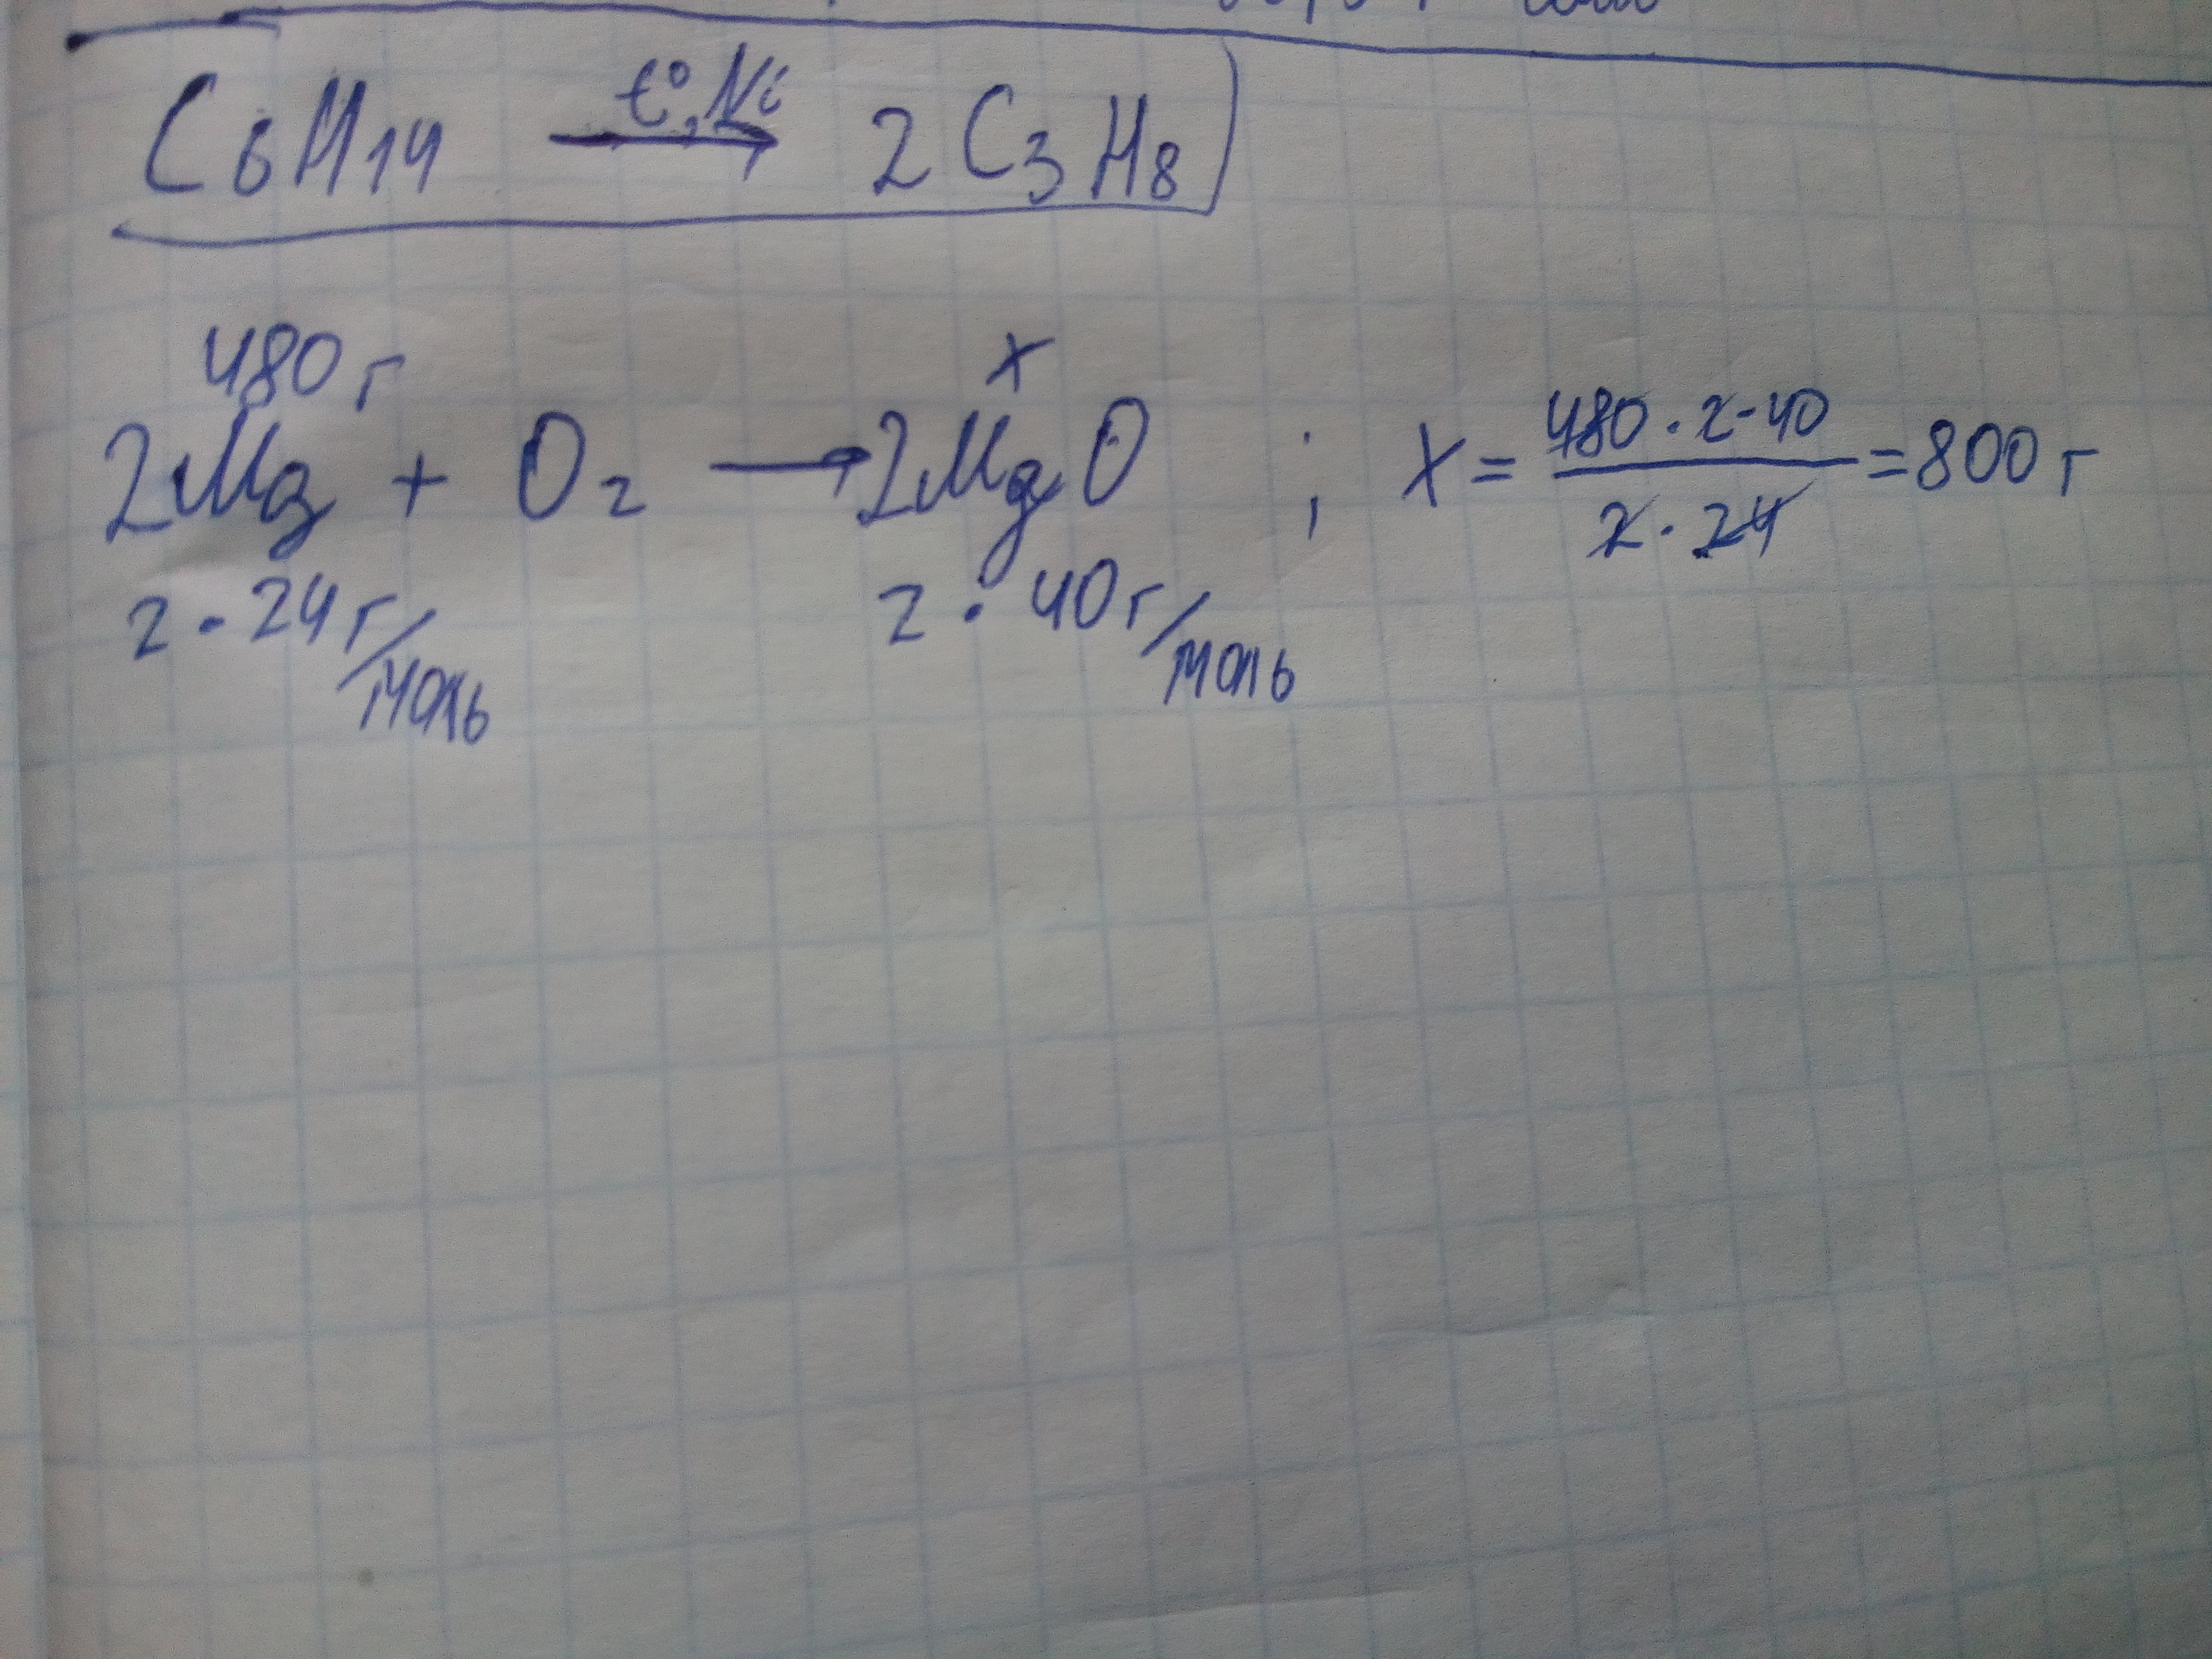 C₆H₁₄ t°, Ni → 2C₃H₈
480 г x
2Mg + O₂ → 2MgO ; x = 480 · 2 · 40 / 2 · 24 = 800 г
2 · 24 г/моль 2 · 40 г/моль